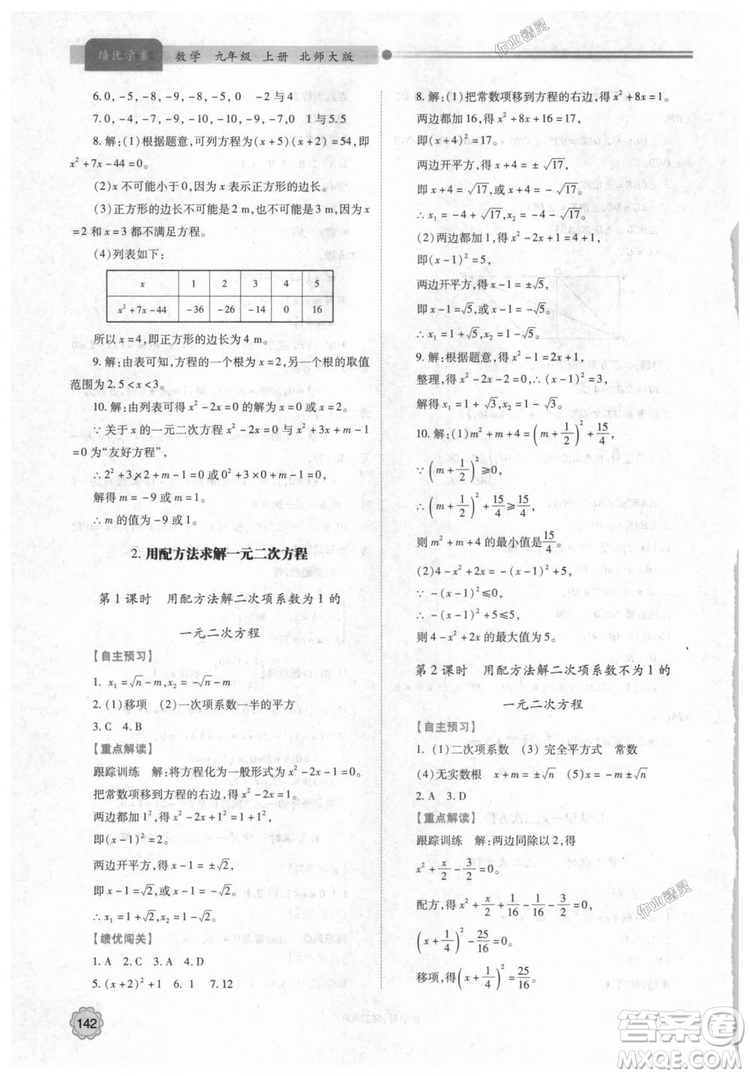 绩优学案 数学 九年级 上册 北师大版
6.0,-5,-8,-9,-8,-5,0 -2与4
7.0,-4,-7,-9,-10,-10,-9 1与5.5
8.解:(1)根据题意,可列方程(x+5)(x+2)=54,即
x²+7x-44=0.
(2)x不可能小于0,因为x表示正方形的边长.
(3)正方形的边长不可能是2 m,也不可能是3 m,因为x
=2和x=3都不满足方程.
(4)列表如下:
x 1 2 3 4 5
x²+7x-44 -36 -26 -14 0 16
所以x=4,即正方形的边长为4 m.
9.解:由表可知,方程的一个根为x=2,另一个根的取值
范围为2.5<x<3.
10.解:由列表可得x²-2x=0的解为x=0或x=2.
∵关于x的一元二次方程x²-2x=0与x²+3x+m-1
=0为“友好方程”,
∴2²+3×2+m-1=1或0²+3×0+m-1=1.
解得m=-9或m=1.
∴m的值为-9或1.
2. 用配方法求解一元二次方程
第1课时 用配方法解二次项系数为1的
一元二次方程
【自主预习】
1. x₁=√n-m,x₂=-√n-m
2. (1)移项 (2)一次项系数一半的平方
3. C 4. B
【重点解读】
跟踪训练 解:将方程化为一般形式为x²-2x-1=0.
把常数项移到方程的右边,得x²-2x=1.
两边都加1²,得x²-2x+1²=1+1²,
即(x-1)²=2.
两边开平方,得x-1=±√2,
即x-1=√2或x-1=-√2.
∴x₁=1+√2,x₂=1-√2.
【绩优闯关】
1. A 2. C 3. A 4. D
5. (x+2)²+1 6. 1 7. 12
8. 解:(1)把常数项移到方程的右边,得x²+8x=1.
两边都加16,得x²+8x+16=17,
即(x+4)²=17.
两边开平方,得x+4=±√17,
即x+4=√17或x+4=-√17.
∴x₁=-4+√17,x₂=-4-√17.
(2)两边都加1,得x²-2x+1=4+1,
即(x-1)²=5,
两边开平方,得x-1=±√5,
即x-1=√5或x-1=-√5.
∴x₁=1+√5,x₂=1-√5.
9. 解:根据题意,得x²-1=2x+1.
整理,得x²-2x-2=0,∴(x-1)²=3.
解得x₁=1+√3,x₂=1-√3.
10. 解:(1)m²+m+4=(m+1/2)²+15/4,
∵(m+1/2)²≥0,
∴(m+1/2)²+15/4≥15/4,
则m²+m+4的最小值是15/4.
(2)4-x²+2x=-(x-1)²+5,
∵-(x-1)²≤0,
∴-(x-1)²+5≤5,
则4-x²+2x的最大值为5.
第2课时 用配方法解二次项系数不为1的
一元二次方程
【自主预习】
1. (1)二次项系数 (3)完全平方式 常数
(4)无实数根 x+m=±√n
2. A 3. D
【重点解读】
跟踪训练 解:两边同除以2,得
x²+x/2-3/2=0.
配方,得x²+x/2+1/16-1/16-3/2=0,
即(x+1/4)²-25/16=0.
移项,得(x+1/4)²=25/16,
142
答案圈
MXQE.COM
作业精灵
作业精灵